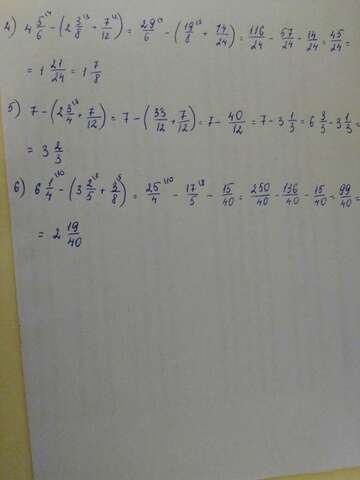 4) 4 5/6 - (2 3/8 + 7/12) = 29/6 - (19/8 + 14/24) = 116/24 - 57/24 - 14/24 = 45/24 =
= 1 21/24 = 1 7/8
5) 7 - (2 3/4 + 7/12) = 7 - (33/12 + 7/12) = 7 - 40/12 = 7 - 3 1/3 = 6 3/3 - 3 1/3 =
= 3 2/3
6) 6 1/4 - (3 2/5 + 3/8) = 25/4 - 17/5 - 15/40 = 250/40 - 136/40 - 15/40 = 99/40 =
= 2 19/40